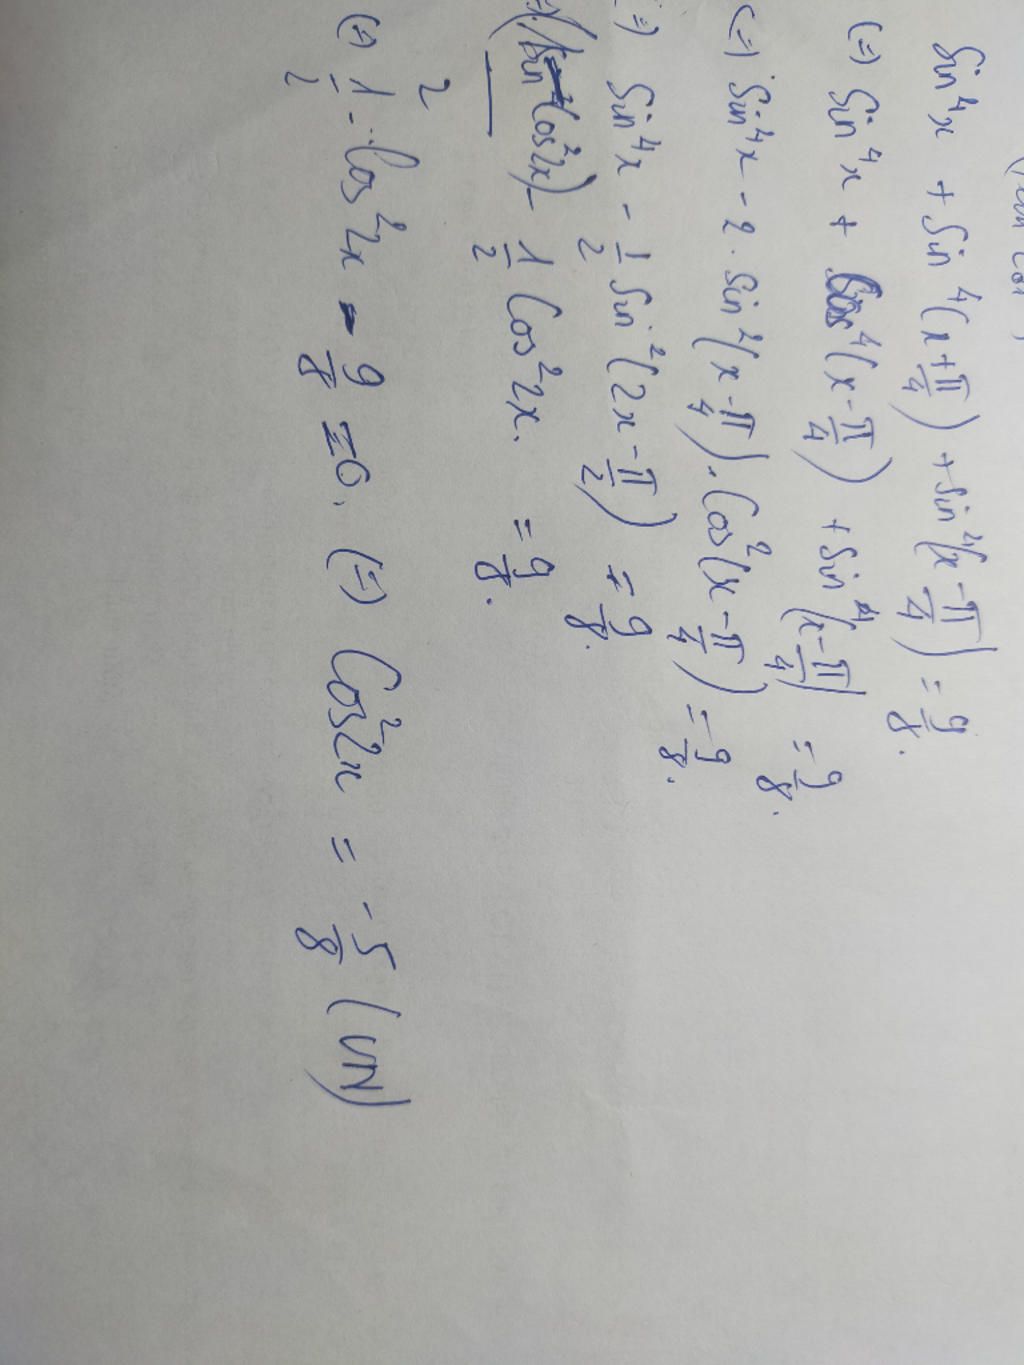 sin⁴x + sin⁴(x+π/4) + sin⁴(x-π/4) = 9/8.
(=) sin⁴x + cos⁴(x-π/4) + sin⁴(x-π/4) = 9/8.
(=) sin⁴x - 2. sin²(x-π/4). cos²(x-π/4) = 9/8.
(=) sin⁴x - 1/2 sin²(2x-π/2) = 9/8.
cos²2x) - 1/2 cos²2x. = 9/8.
2
(=) 1/2 - cos²2x - 9/8 = 0. (=) cos²2x = -5/8 (VN)